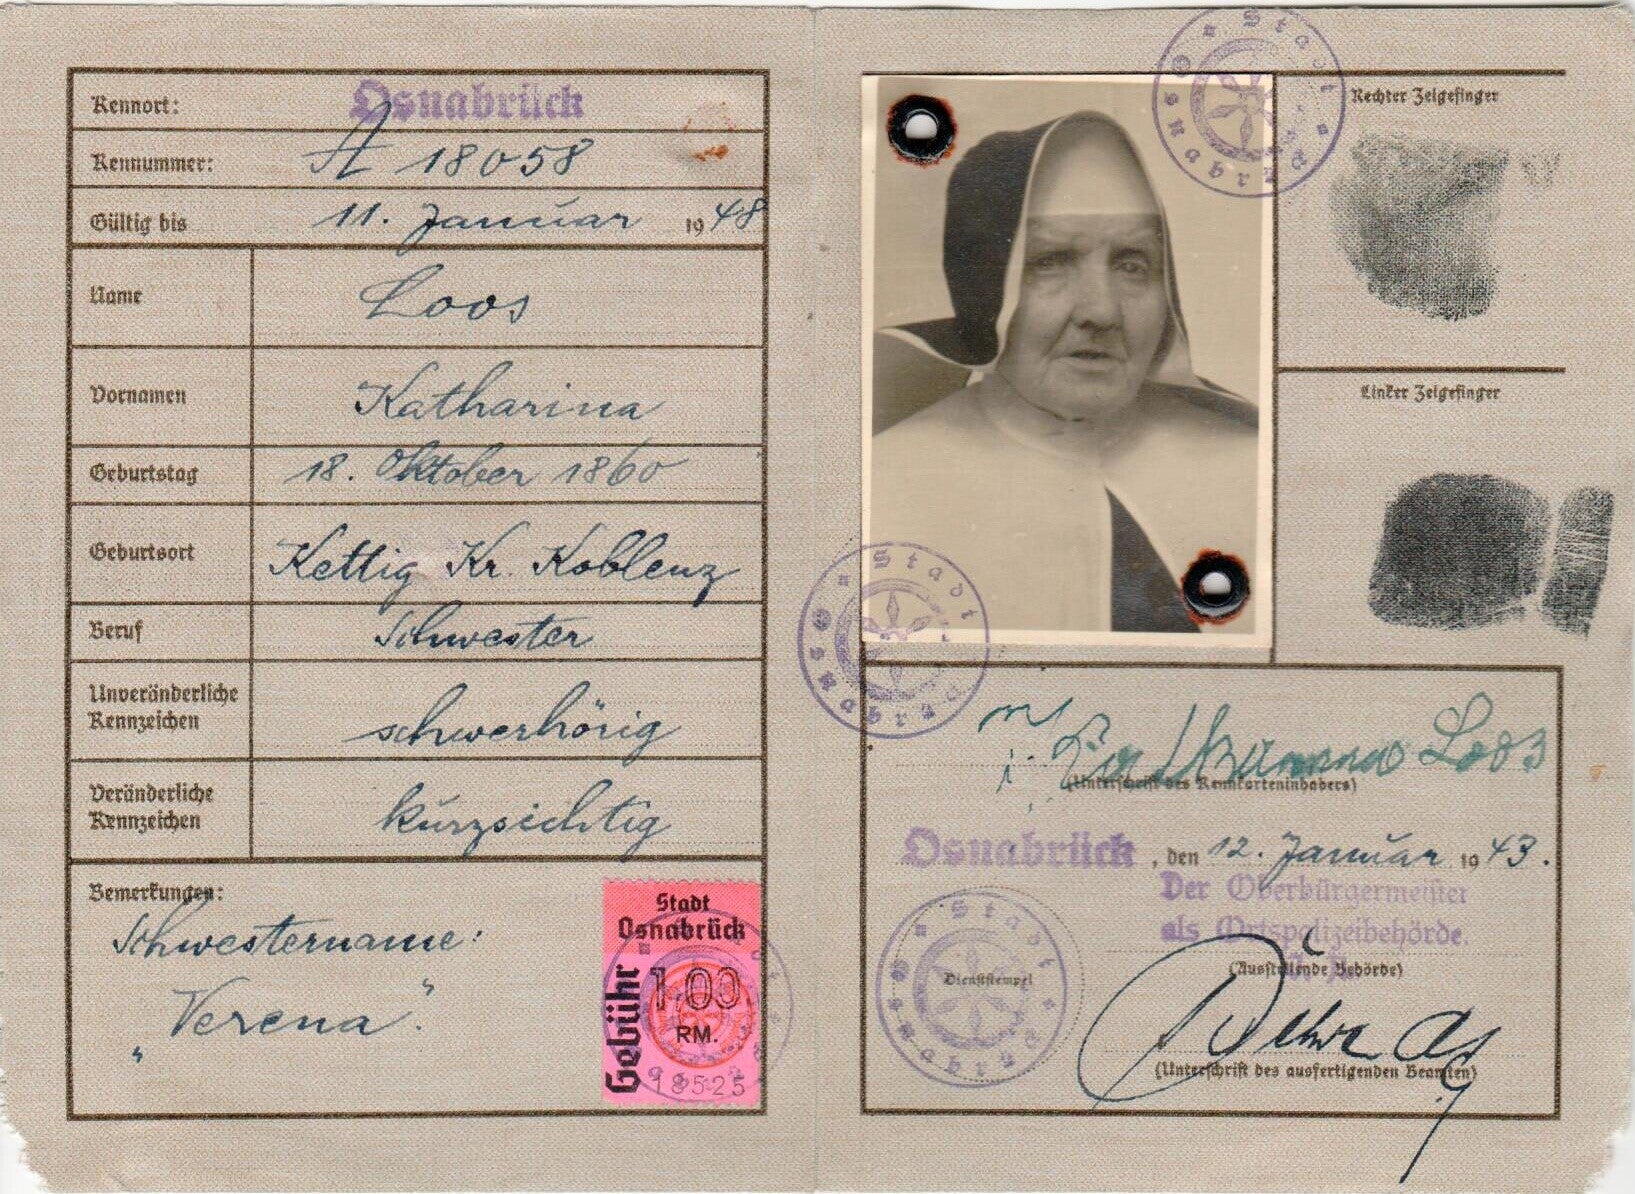 Kennort: Osnabrück
Kennummer: A 18058
Gültig bis 11. Januar 1948
Name Loos
Vornamen Katharina
Geburtstag 18. Oktober 1860
Geburtsort Kettig Kr. Koblenz
Beruf Schwester
Unveränderliche
Kennzeichen schwerhörig
Veränderliche
Kennzeichen kurzsichtig
Bemerkungen:
Schwestername:
„Verena“.
Stadt
Osnabrück
Gebühr
1.00
RM.
18525
Stadt Osnabrück
Rechter Zeigefinger
Linker Zeigefinger
Stadt Osnabrück
Katharina Loos
(Unterschrift des Kennkarteninhabers)
Osnabrück, den 12. Januar 1943.
Der Oberbürgermeister
als Ortspolizeibehörde.
(Ausstellende Behörde)
Stadt Osnabrück
Dienststempel
(Unterschrift des ausfertigenden Beamten)